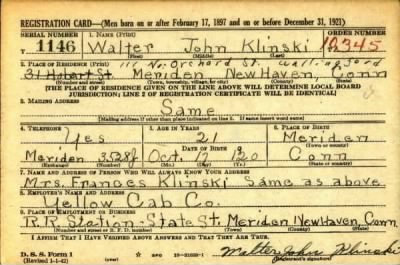 REGISTRATION CARD—(Men born on or after February 17, 1897 and on or before December 31, 1921)
SERIAL NUMBER 1. NAME (Print) ORDER NUMBER
T 1146 Walter John Klinski 12,345
(First) (Middle) (Last)
111 No. Orchard St. Wallingford
2. PLACE OF RESIDENCE (Print)
31 Hobart St. Meriden New Haven, Conn
(Number and street) (Town, township, village, or city) (County) (State)
[THE PLACE OF RESIDENCE GIVEN ON THE LINE ABOVE WILL DETERMINE LOCAL BOARD
JURISDICTION; LINE 2 OF REGISTRATION CERTIFICATE WILL BE IDENTICAL]
3. MAILING ADDRESS
Same
[Mailing address if other than place indicated on line 2. If same insert word same]
4. TELEPHONE 5. AGE IN YEARS 6. PLACE OF BIRTH
Yes 21 Meriden
DATE OF BIRTH (Town or county)
Meriden Oct. 17 20 Conn
(Exchange) (Number) (Mo.) (Day) (Yr.) (State or country)
7. NAME AND ADDRESS OF PERSON WHO WILL ALWAYS KNOW YOUR ADDRESS
Mrs. Frances Klinski Same as above
8. EMPLOYER'S NAME AND ADDRESS
Yellow Cab Co.
9. PLACE OF EMPLOYMENT OR BUSINESS
R.R. Station - State St. Meriden New Haven, Conn.
(Number and street or R. F. D. number) (Town) (County) (State)
I AFFIRM THAT I HAVE VERIFIED ABOVE ANSWERS AND THAT THEY ARE TRUE.
D. S. S. Form 1 Walter John Klinski
(Revised 1-1-42) (Registrant's signature)